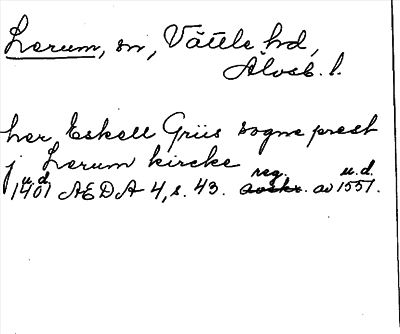 Lerum, sn, Vättle hd,
Älvsb. l.
her Eskell Griis sogne prest
j Lerum kircke
u.d. reg. u.d.
1401 AEDA 4, s. 43. avskr. av 1551.